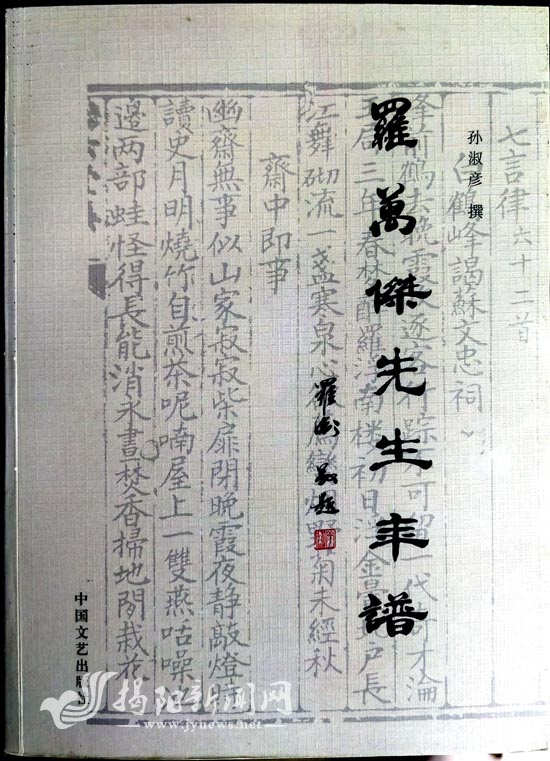 孙淑彦 撰
羅萬傑先生年譜
中国文艺出版社
七言律六十二首
白鶴峰謁蘇文忠祠
峰前鶴去晚霞 逐客 可留一代 才淪
三年春 羅 南樓初日 金 戶長
江舞砌流一盞寒泉心 野菊未經秋
齋中即事
幽齋無事似山家寂寂柴扉閉晚霞夜静敲燈
讀史月明燒竹自煎茶呢喃屋上一雙燕咶噪
邊两部蛙怪得長能消永晝焚香掃地閒栽花
揭阳新闻网
www.jynews.net